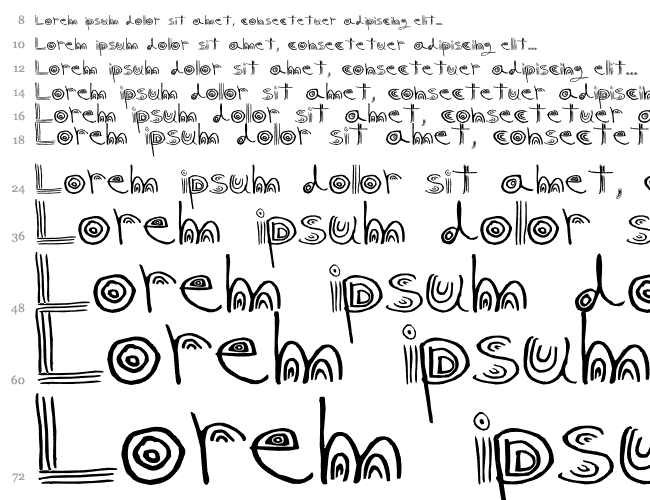 8 Lorem ipsum dolor sit amet, consectetuer adipiscing elit...
10 Lorem ipsum dolor sit amet, consectetuer adipiscing elit...
12 Lorem ipsum dolor sit amet, consectetuer adipiscing elit...
14 Lorem ipsum dolor sit amet, consectetuer adipiscin
16 Lorem ipsum dolor sit amet, consectetuer a
18 Lorem ipsum dolor sit amet, consectet
24 Lorem ipsum dolor sit amet, c
36 Lorem ipsum dolor s
48 Lorem ipsum do
60 Lorem ipsum
72 Lorem ipsu